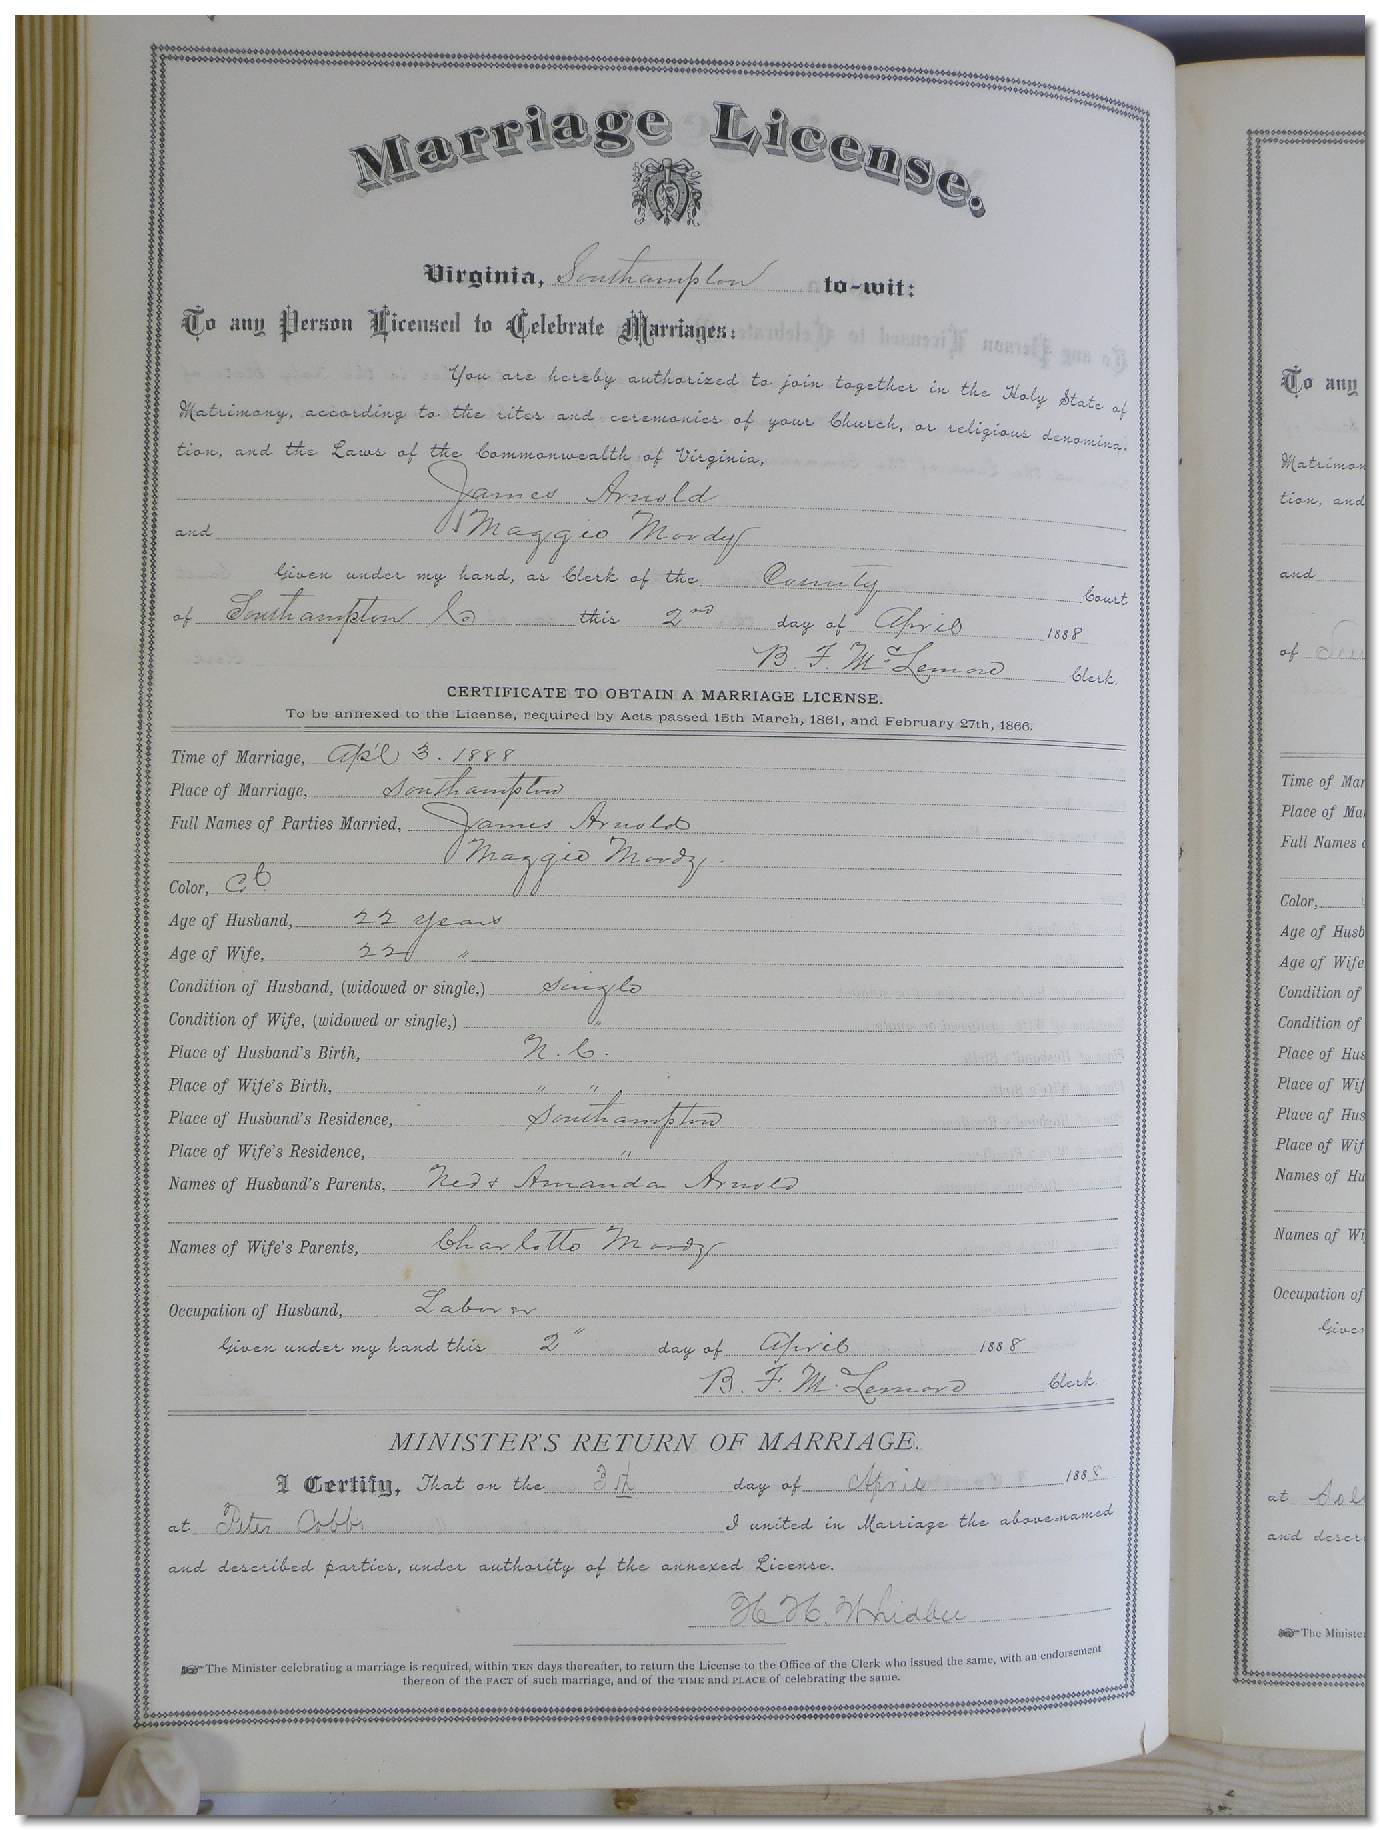 Marriage License.
Virginia, Southampton to-wit:
To any Person Licensed to Celebrate Marriages:
You are hereby authorized to join together in the Holy State of
Matrimony, according to the rites and ceremonies of your Church, or religious denomina-
tion, and the Laws of the Commonwealth of Virginia,
James Arnold
and Maggie Moody
Given under my hand, as Clerk of the County Court
of Southampton Co this 2nd day of April 1888
B. F. McLemore Clerk.
CERTIFICATE TO OBTAIN A MARRIAGE LICENSE.
To be annexed to the License, required by Acts passed 15th March, 1861, and February 27th, 1866.
Time of Marriage, Apl 3. 1888
Place of Marriage, Southampton
Full Names of Parties Married, James Arnold
Maggie Moody.
Color, Cd
Age of Husband, 22 years
Age of Wife, 22 "
Condition of Husband, (widowed or single,) single
Condition of Wife, (widowed or single,) "
Place of Husband's Birth, N. C.
Place of Wife's Birth, " "
Place of Husband's Residence, Southampton
Place of Wife's Residence, "
Names of Husband's Parents, Ned & Amanda Arnold
Names of Wife's Parents, Charlotte Moody
Occupation of Husband, Laborer
Given under my hand this 2" day of April 1888
B. F. McLemore Clerk.
MINISTER'S RETURN OF MARRIAGE.
I Certify, That on the 3rd day of April 1888
at Peter Cobbs I united in Marriage the above-named
and described parties, under authority of the annexed License.
H. H. Whidbee
The Minister celebrating a marriage is required, within TEN days thereafter, to return the License to the Office of the Clerk who issued the same, with an endorsement
thereon of the FACT of such marriage, and of the TIME and PLACE of celebrating the same.
To any
Matrimon
tion, and
and
of
Time of Mar
Place of Ma
Full Names o
Color,
Age of Husb
Age of Wife
Condition of
Condition of
Place of Hus
Place of Wif
Place of Hus
Place of Wif
Names of Hu
Names of Wi
Occupation of
Given
at
and descri
The Ministe